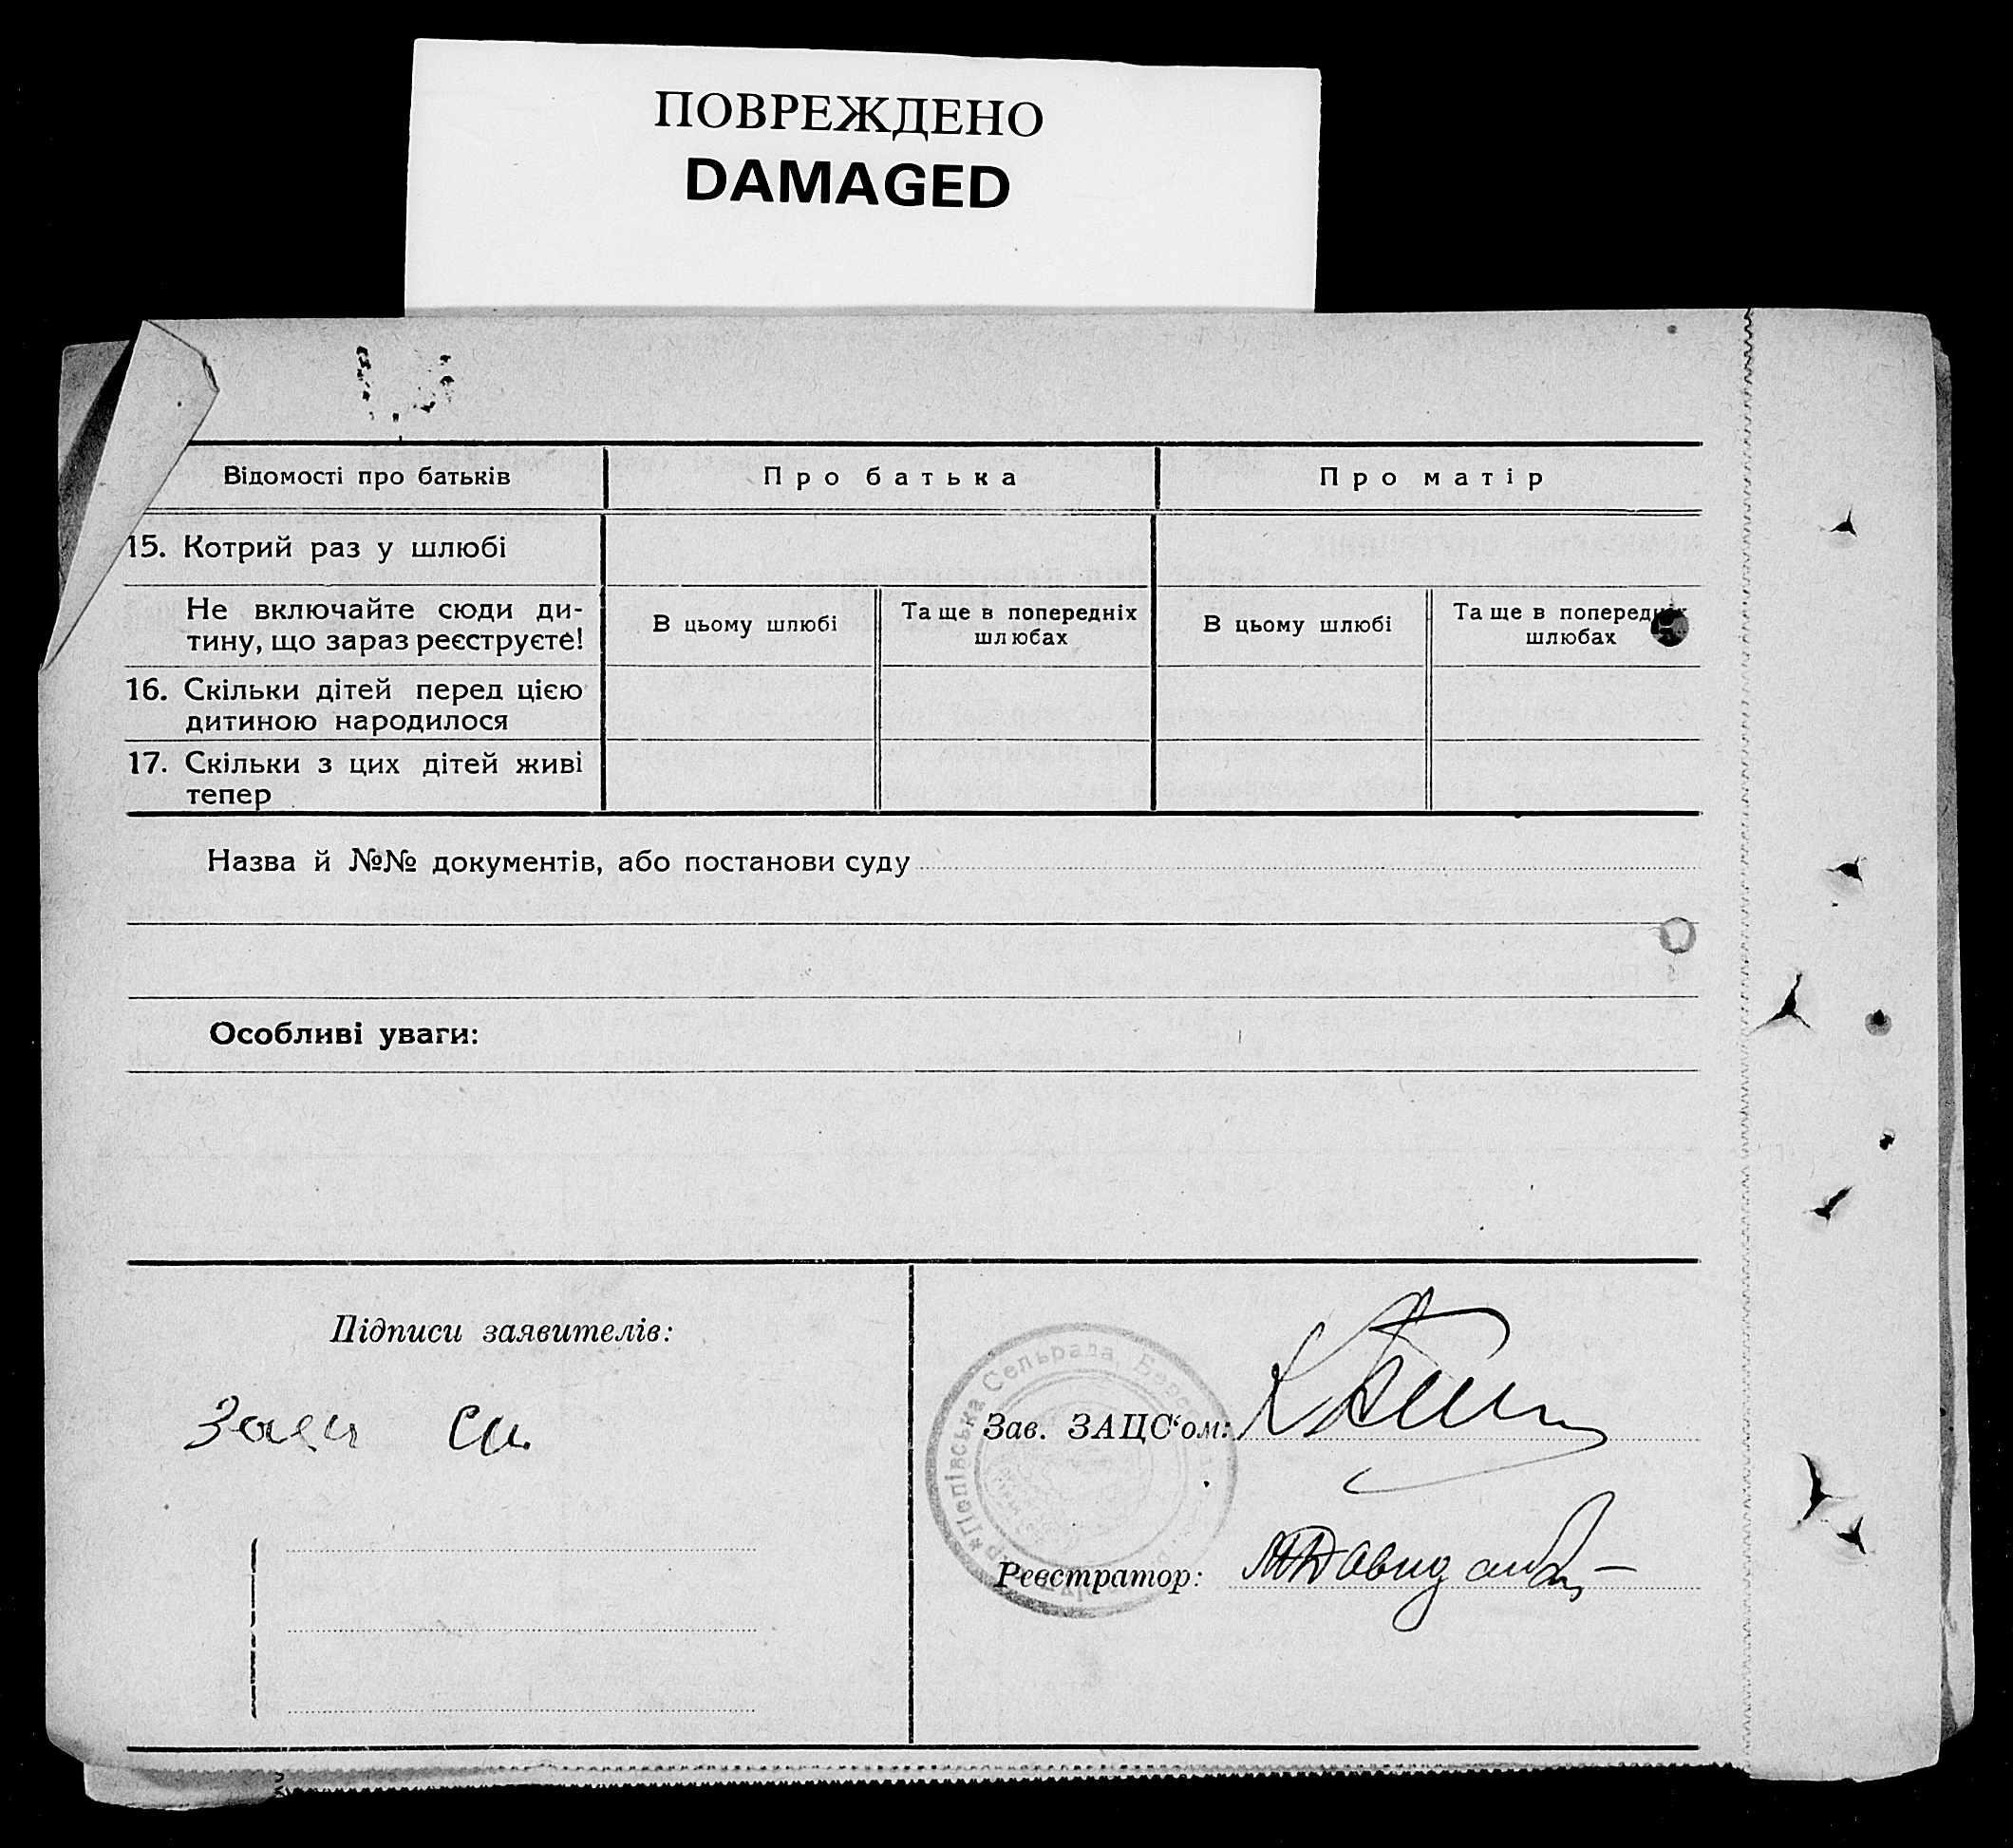 ПОВРЕЖДЕНО
DAMAGED
Відомості про батьків
Про батька
Про матір
15. Котрий раз у шлюбі
Не включайте сюди ди-
тину, що зараз реєструєте!
В цьому шлюбі
Та ще в попередніх
шлюбах
В цьому шлюбі
Та ще в попередніх
шлюбах
16. Скільки дітей перед цією
дитиною народилося
17. Скільки з цих дітей живі
тепер
Назва й №№ документів, або постанови суду
Особливі уваги:
Підписи заявителів:
Попівська Сельрада
Зав. ЗАЦС‘ом:
Реєстратор: